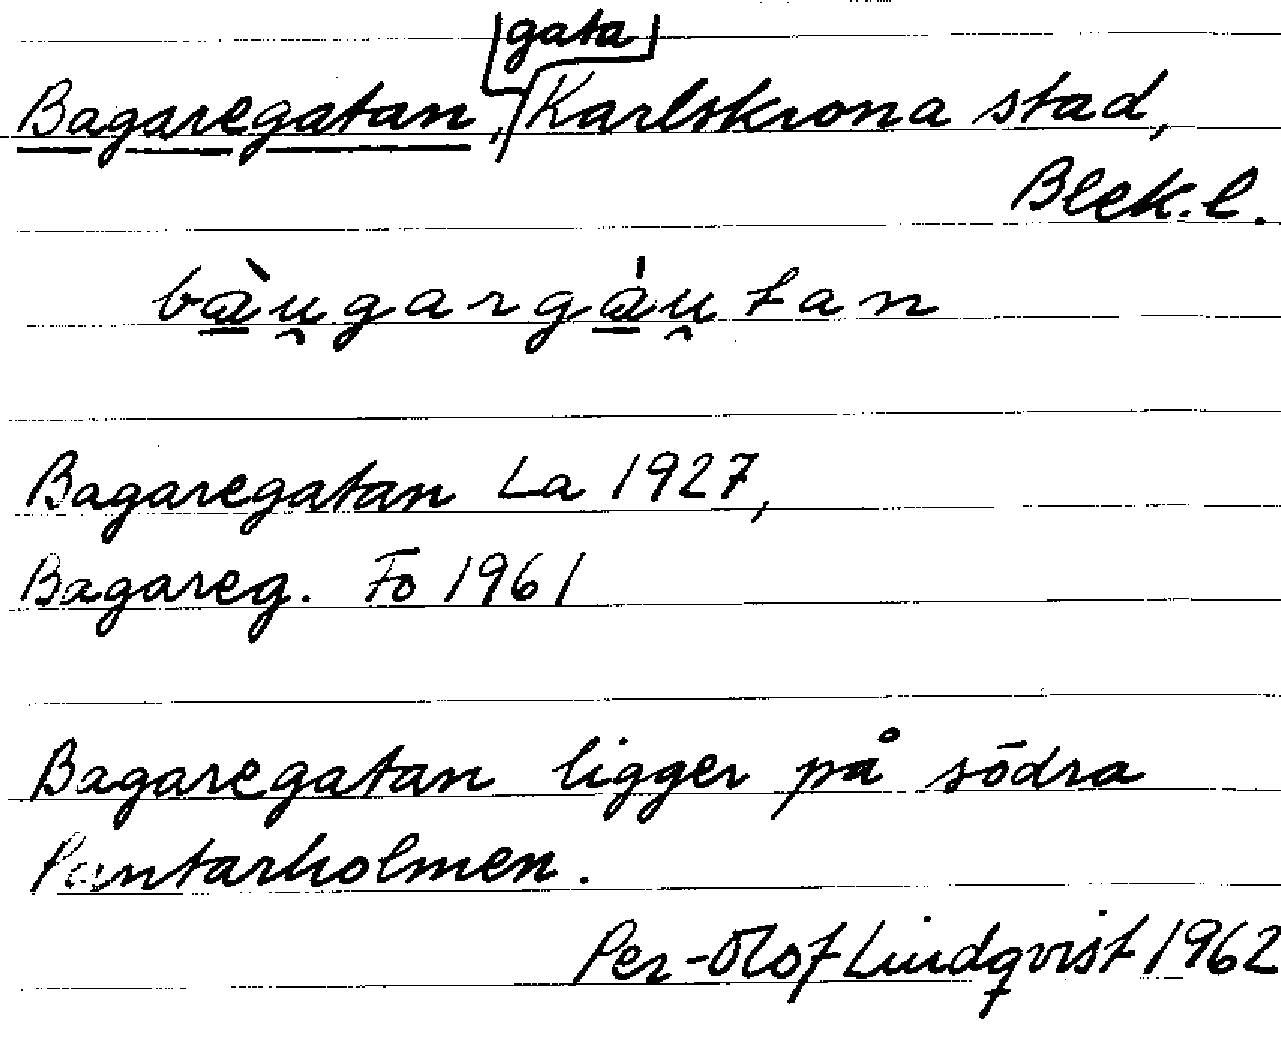 gata
Bagaregatan, Karlskrona stad,
Blek. l.
bàu̯gargàu̯tan
Bagaregatan La 1927,
Bagareg. Fo 1961
Bagaregatan ligger på södra
Pantarholmen.
Per-Olof Lindqvist 1962